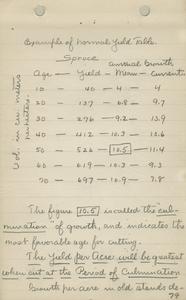 Example of Normal Yield Table.
Spruce
Annual Growth
Age — Yield — Mean — Current
10 — 40 — 4 — 4
20 — 137 — 6.8 — 9.7
30 — 276 — 9.2 — 13.9
40 — 412 — 10.3 — 13.6
50 — 526 — 10.5 — 11.4
60 — 619 — 10.3 — 9.3
70 — 697 — 10.9 — 7.8
Vol. in cu. meters
per hectare.
The figure 10.5 is called the "cul-
mination" of growth, and indicates the
most favorable age for cutting.
The Yield per Acre will be greatest
when cut at the Period of Culmination
Growth per acre in old stands de-